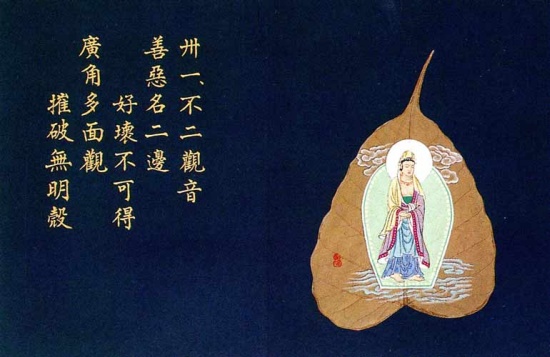 卅一、不二觀音
善惡名二邊
好壞不可得
廣角多面觀
摧破無明殼